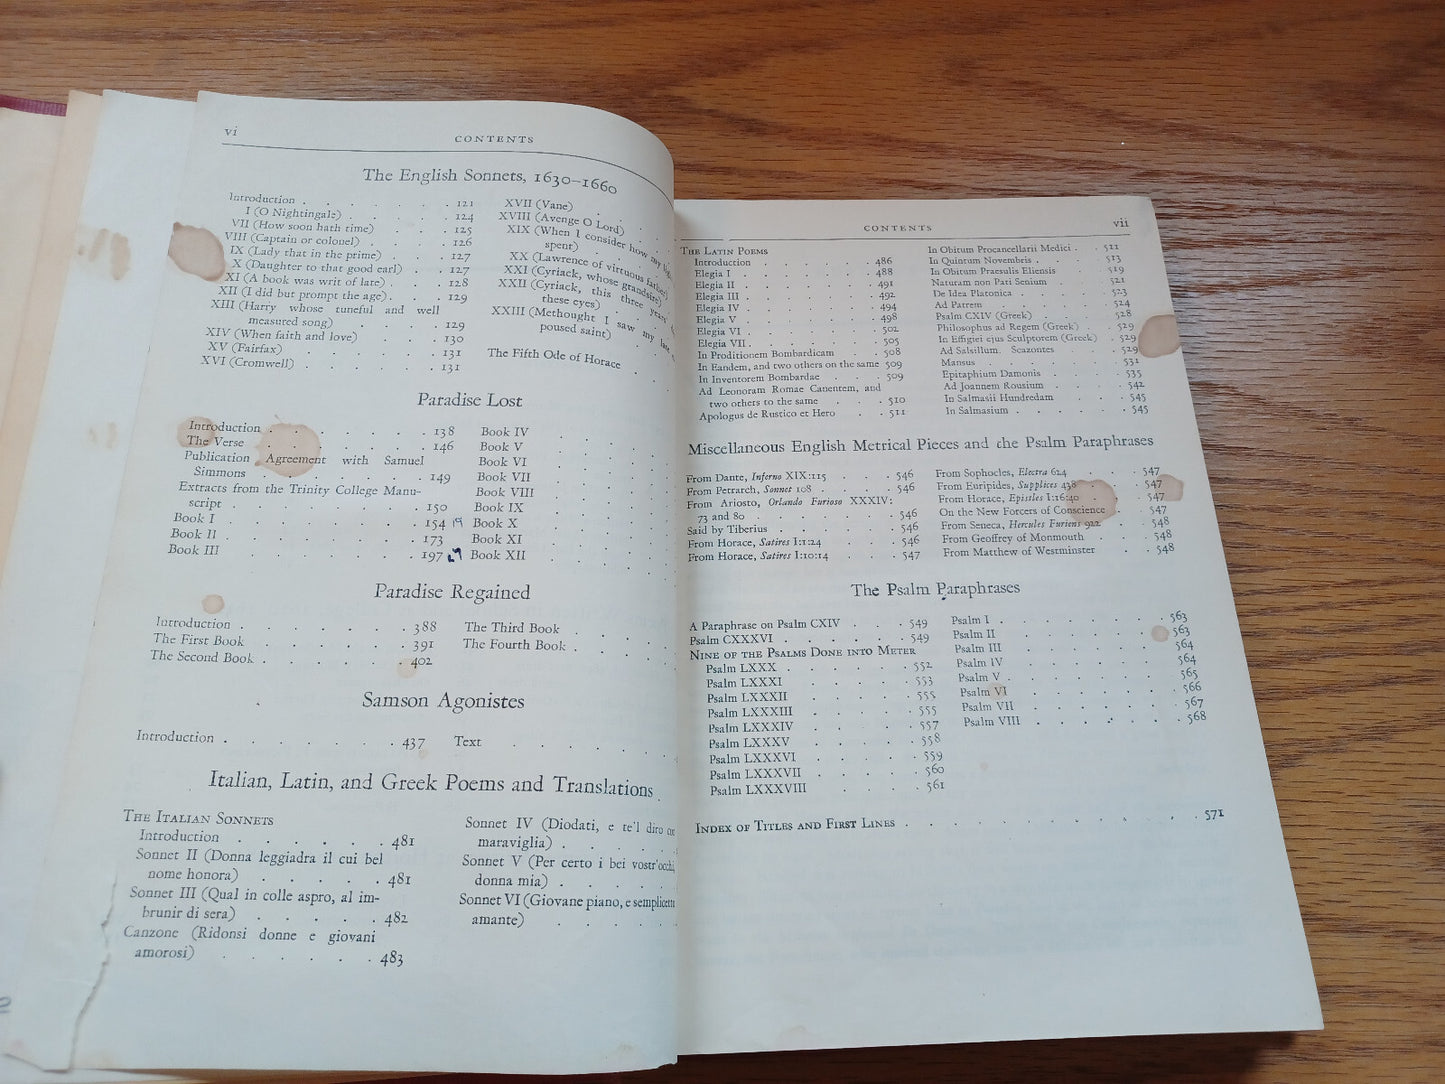 vi
CONTENTS
The English Sonnets, 1630–1660
Introduction . . . . . . 121
I (O Nightingale) . . . . 124
VII (How soon hath time) . . . 125
VIII (Captain or colonel) . . . 126
IX (Lady that in the prime) . . . 127
X (Daughter to that good earl) . . 127
XI (A book was writ of late) . . . 128
XII (I did but prompt the age) . . . 129
XIII (Harry whose tuneful and well
measured song) . . . . 129
XIV (When faith and love) . . . 130
XV (Fairfax) . . . . . 131
XVI (Cromwell) . . . . . 131
XVII (Vane)
XVIII (Avenge O Lord)
XIX (When I consider how my
spent)
XX (Lawrence of virtuous father)
XXI (Cyriack, whose grandsire)
XXII (Cyriack, this three years'
these eyes)
XXIII (Methought I saw my late
poused saint)
The Fifth Ode of Horace
Paradise Lost
Introduction . . . . . 138
The Verse . . . . . 146
Publication Agreement with Samuel
Simmons . . . . . 149
Extracts from the Trinity College Manu-
script . . . . . 150
Book I . . . . . 154 19
Book II . . . . . 173
Book III . . . . . 197
Book IV
Book V
Book VI
Book VII
Book VIII
Book IX
Book X
Book XI
Book XII
Paradise Regained
Introduction . . . . . 388
The First Book . . . . . 391
The Second Book . . . . . 402
The Third Book
The Fourth Book
Samson Agonistes
Introduction . . . . . 437
Text
Italian, Latin, and Greek Poems and Translations
THE ITALIAN SONNETS
Introduction . . . . . 481
Sonnet II (Donna leggiadra il cui bel
nome honora) . . . . . 481
Sonnet III (Qual in colle aspro, al im-
brunir di sera) . . . . . 482
Canzone (Ridonsi donne e giovani
amorosi) . . . . . 483
Sonnet IV (Diodati, e te'l diro con
maraviglia)
Sonnet V (Per certo i bei vostr'occhi,
donna mia)
Sonnet VI (Giovane piano, e semplicetto
amante)
CONTENTS
vii
THE LATIN POEMS
Introduction . . . . . 486
Elegia I . . . . . 488
Elegia II . . . . . 491
Elegia III . . . . . 492
Elegia IV . . . . . 494
Elegia V . . . . . 498
Elegia VI . . . . . 502
Elegia VII . . . . . 505
In Proditionem Bombardicam . . . 508
In Eandem, and two others on the same 509
In Inventorem Bombardae . . . 509
Ad Leonoram Romae Canentem, and
two others to the same . . . 510
Apologus de Rustico et Hero . . . 511
In Obitum Procancellarii Medici . . 511
In Quintum Novembris . . . . 513
In Obitum Praesulis Eliensis . . . 519
Naturam non Pati Senium . . . 521
De Idea Platonica . . . . 523
Ad Patrem . . . . . 524
Psalm CXIV (Greek) . . . . 528
Philosophus ad Regem (Greek) . . 529
In Effigiei ejus Sculptorem (Greek) . 529
Ad Salsillum. Scazontes . . . 529
Mansus . . . . . 531
Epitaphium Damonis . . . . 535
Ad Joannem Rousium . . . . 542
In Salmasii Hundredam . . . . 545
In Salmasium . . . . . 545
Miscellaneous English Metrical Pieces and the Psalm Paraphrases
From Dante, Inferno XIX:115 . . . 546
From Petrarch, Sonnet 108 . . . 546
From Ariosto, Orlando Furioso XXXIV:
73 and 80 . . . . . 546
Said by Tiberius . . . . 546
From Horace, Satires I:1:24 . . . 546
From Horace, Satires I:10:14 . . . 547
From Sophocles, Electra 624 . . . 547
From Euripides, Supplices 438 . . . 547
From Horace, Epistles I:16:40 . . . 547
On the New Forcers of Conscience . . 547
From Seneca, Hercules Furiens 922 . . 548
From Geoffrey of Monmouth . . . 548
From Matthew of Westminster . . 548
The Psalm Paraphrases
A Paraphrase on Psalm CXIV . . . 549
Psalm CXXXVI . . . . . 549
NINE OF THE PSALMS DONE INTO METER
Psalm LXXX . . . . . 552
Psalm LXXXI . . . . . 553
Psalm LXXXII . . . . . 555
Psalm LXXXIII . . . . . 555
Psalm LXXXIV . . . . . 557
Psalm LXXXV . . . . . 558
Psalm LXXXVI . . . . . 559
Psalm LXXXVII . . . . . 560
Psalm LXXXVIII . . . . . 561
Psalm I . . . . . 563
Psalm II . . . . . 563
Psalm III . . . . . 564
Psalm IV . . . . . 564
Psalm V . . . . . 565
Psalm VI . . . . . 566
Psalm VII . . . . . 567
Psalm VIII . . . . . 568
INDEX OF TITLES AND FIRST LINES . . . . . 571